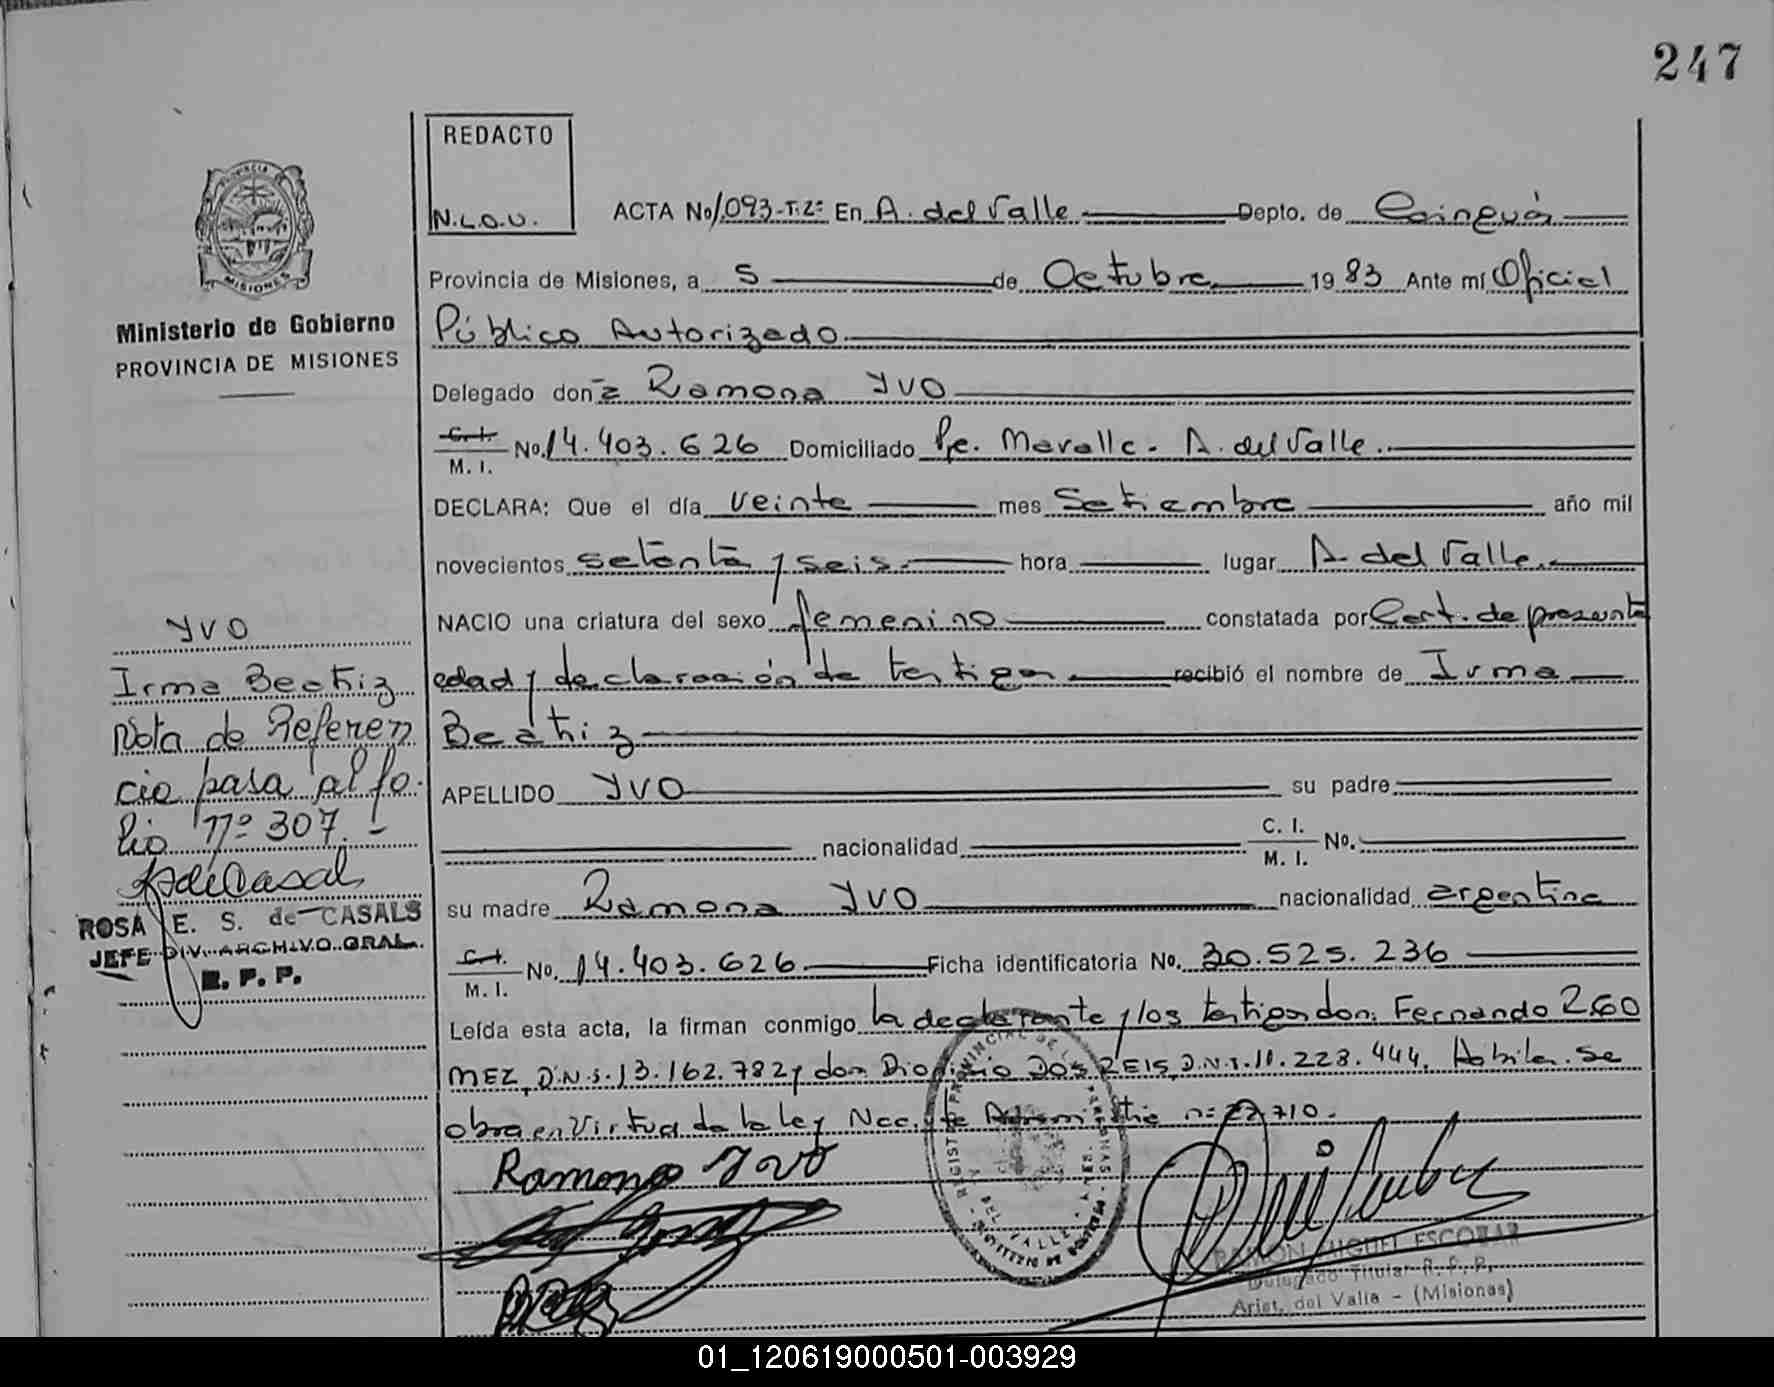 247
REDACTO
N.L.O.U.
ACTA No 1.093-T.2º En A. del Valle Depto. de Cainguás
Provincia de Misiones, a 5 de Octubre 1983 Ante mí Oficial
Público Autorizado
Delegado doña Ramona YVO
C. I. M. I. No. 14.403.626 Domiciliado Pje. Mavalle. A. del Valle.
DECLARA: Que el día veinte mes Setiembre año mil
novecientos setenta y seis hora lugar A. del Valle.
NACIO una criatura del sexo femenino constatada por Cert. de presunta
edad y declaración de testigos recibió el nombre de Irma
Beatriz
APELLIDO YVO su padre
nacionalidad C. I. M. I. No.
su madre Ramona YVO nacionalidad argentina
C. I. M. I. No. 14.403.626 Ficha identificatoria No. 20.525.236
Leída esta acta, la firman conmigo la declarante y los testigos don: Fernando GO
MEZ, D.N.I. 13.162.782 y don Dionicio DOS REIS, D.N.I. 11.223.444, Hábiles. Se
obra en virtud de la ley Nac. de Amnistia nº 22.710.
Ramona Yvo
RAMON MIGUEL ESCOBAR
Delegado Titular R. P. P.
Arist. del Valle - (Misiones)
PROVINCIA DE
MISIONES
Ministerio de Gobierno
PROVINCIA DE MISIONES
YVO
Irma Beatriz
Nota de Referen
cia pasa al fo-
lio nº 307.-
ROSA E. S. de CASALS
JEFE DIV. ARCHIVO GRAL.
R. P. P.
01_120619000501-003929